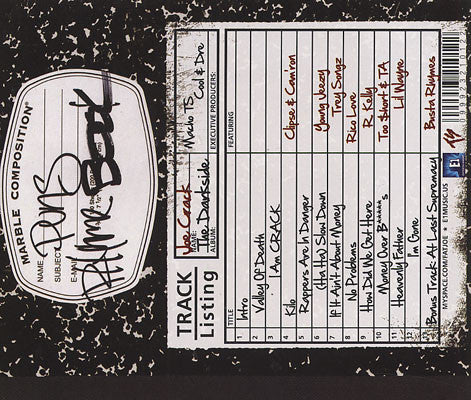 MARBLE COMPOSITION®
NAME
SUBJECT
E-MAIL
RHYME BOOK
TRACK
Listing
NAME: Joe Crack
ALBUM: The Darkside
Macho TS Cool & Dre
EXECUTIVE PRODUCERS:
TITLE FEATURING
1 Intro
2 Valley Of Death
3 I Am CRACK
4 Kilo Clipse & Cam'ron
5 Rappers Are In Danger
6 (Ha Ha) Slow Down Young Jeezy
7 If It Ain't About Money Trey Songz
8 No Problems Rico Love
9 How Did We Get Here R. Kelly
10 Money Over B*****s Too $hort & TA
11 Heavenly Father Lil Wayne
12 I'm Gone
13 Bonus Track: At Last Supremacy Busta Rhymes
MYSPACE.COM/FATJOE • E1MUSIC.US